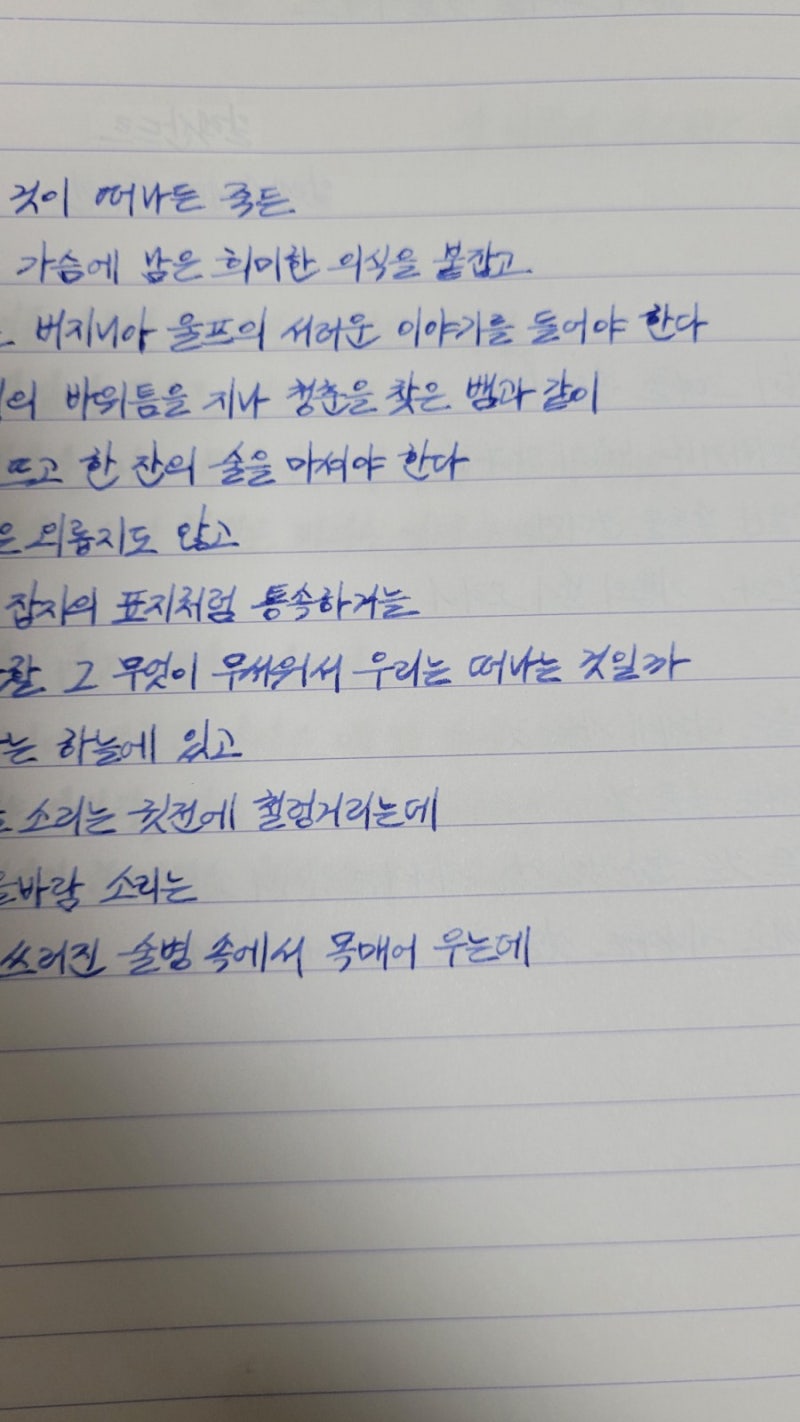 것이 떠나든 죽든
가슴에 남은 희미한 의식을 붙잡고
버지니아 울프의 서러운 이야기를 들어야 한다
의 바위틈을 지나 청춘을 찾은 뱀과 같이
뜨고 한 잔의 술을 마셔야 한다
은 외롭지도 않고
잡지의 표지처럼 통속하거늘
할 그 무엇이 무서워서 우리는 떠나는 것일까
는 하늘에 있고
소리는 귓전에 철렁거리는데
을바람 소리는
쓰러진 술병 속에서 목매어 우는데